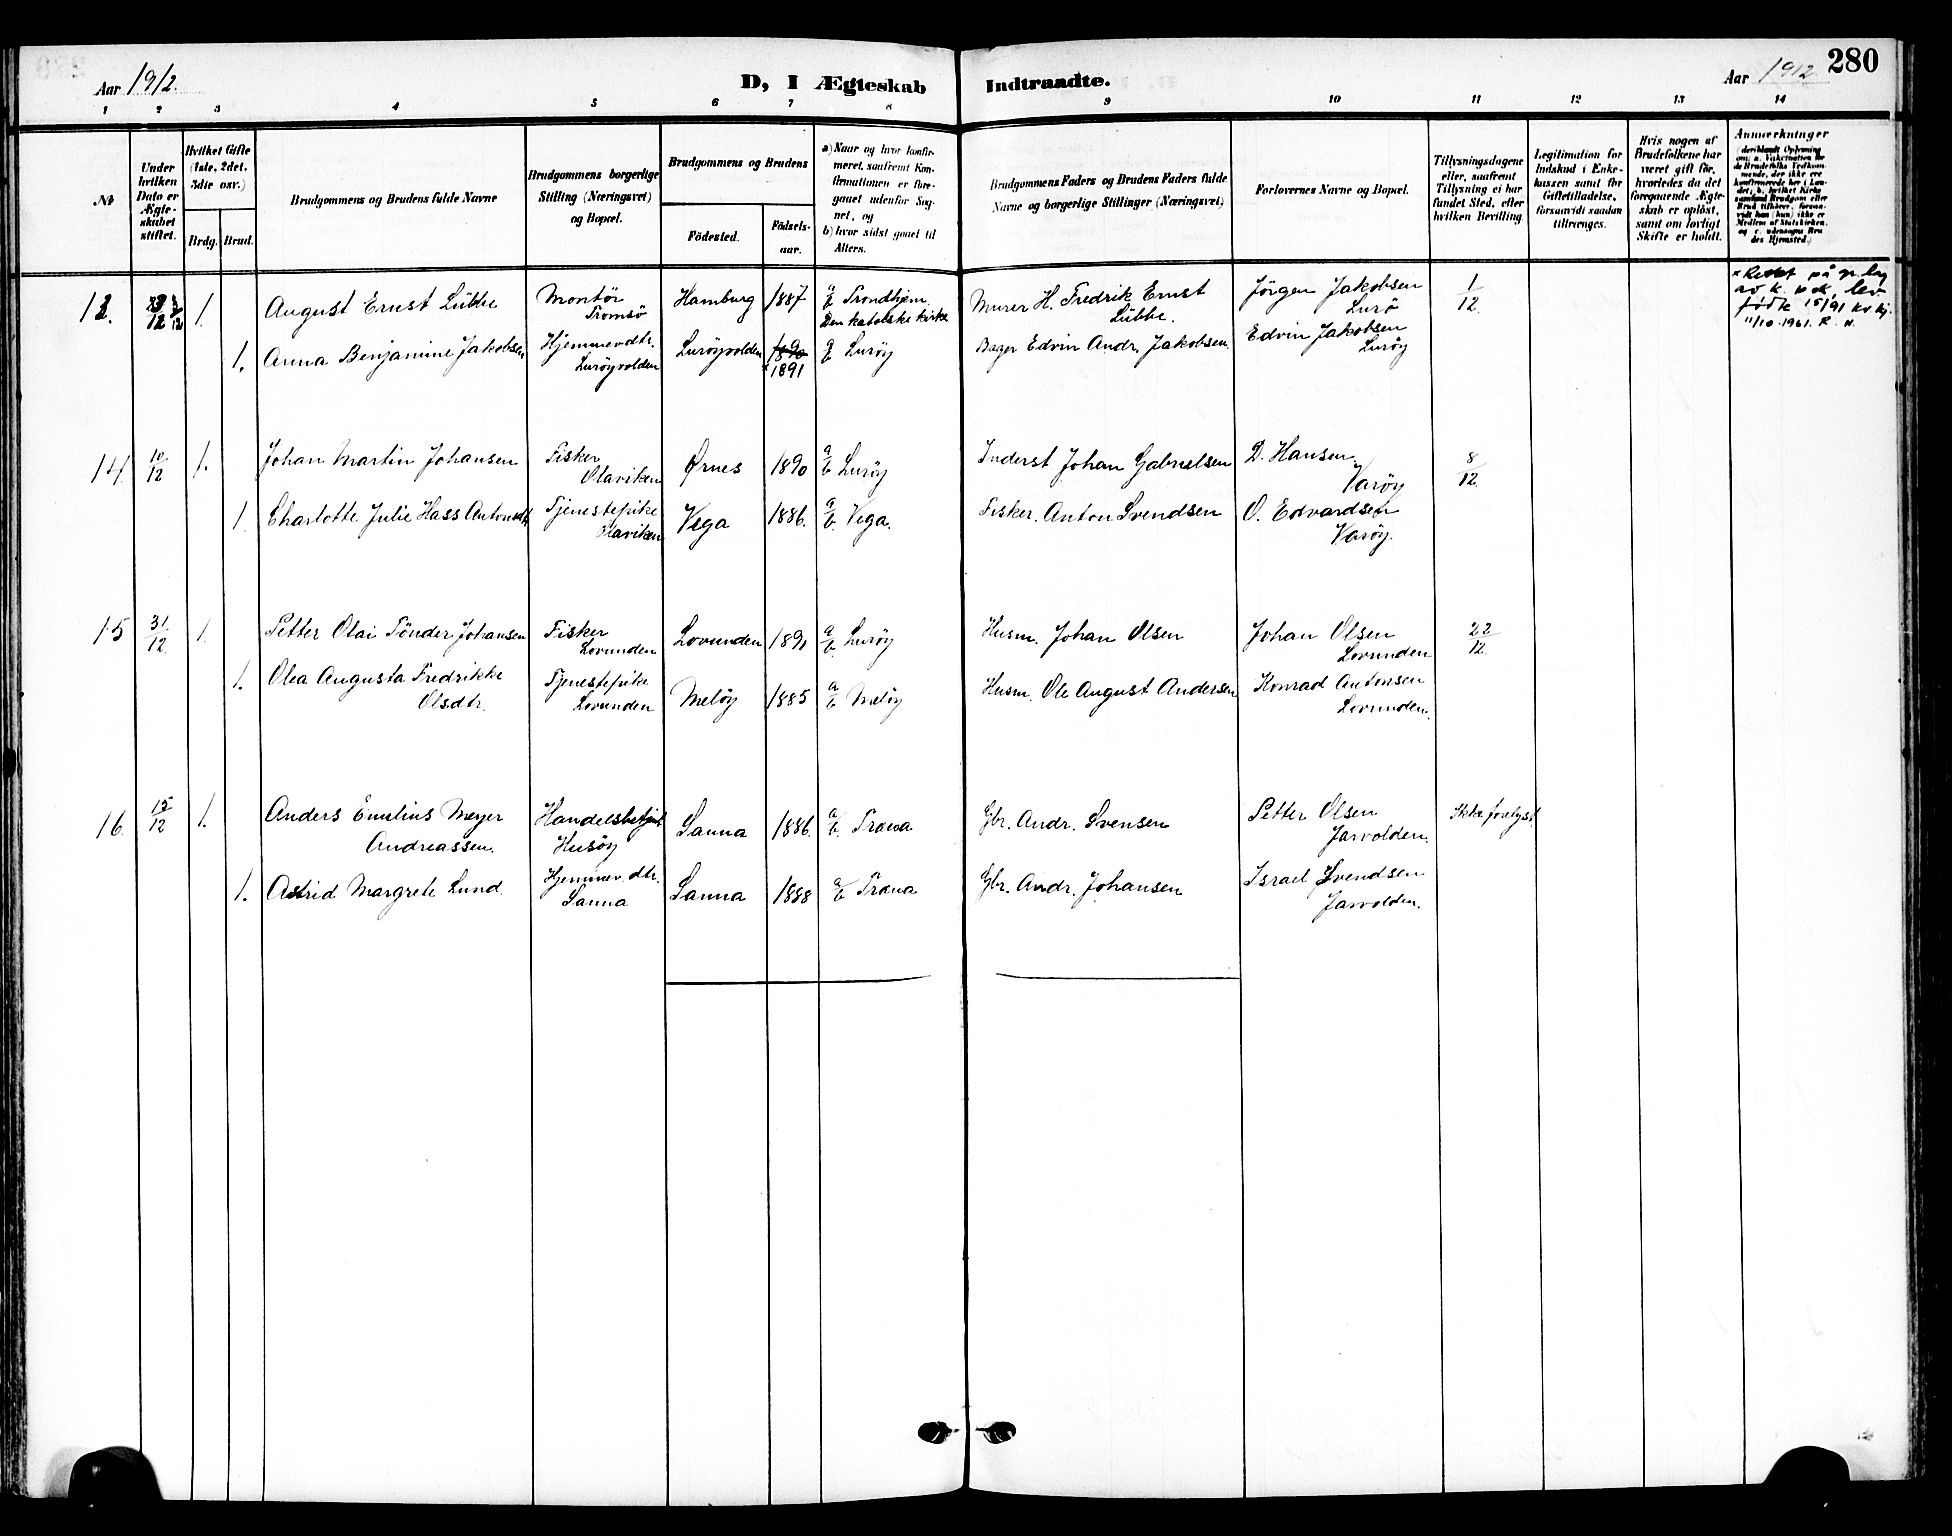 Aar 1912.
D, I Ægteskab Indtraadte.
Aar 1912
280
1 2 3 4 5 6 7 8 9 10 11 12 13 14
№
Under hvilken Dato er Ægteskabet stiftet.
Hvilket Gifte (1ste, 2det, 3die osv.)
Brdg. Brud.
Brudgommens og Brudens fulde Navne
Brudgommens borgerlige Stilling (Næringsvei) og Bopæl.
Brudgommens og Brudens
Födested.
Födselsaar.
a) Naar og hvor konfirmeret, saafremt Konfirmationen er foregaaet udenfor Sognet, og
b) hvor sidst gaaet til Alters.
Brudgommens Faders og Brudens Faders fulde Navne og borgerlige Stillinger (Næringsvei)
Forlovernes Navne og Bopæl.
Tillysningsdagene eller, saafremt Tillysning ei har fundet Sted, efter hvilken Bevilling.
Legitimation for Indskud i Enkekassen samt för Giftetilladelse, forsaavidt saadan tiltrænges.
Hvis nogen af Brudefolkene har været gift för, hvorledes da det foregaaende Ægteskab er oplöst, samt om lovligt Skifte er holdt.
Anmærkninger
13. 3/12 1. August Ernst Lübbe Montör Tromsö Hamburg 1887 a/b Trondhjem. Den katolske kirke Murer H. Fredrik Ernst Lübbe. Jörgen Jakobsen Lurö 1/12
1. Anna Benjamine Jakobsen Hjemmev. dtr. Luröyvolden Luröyvolden 1890 x 1891 a/b Luröy Bager Edvin Andr. Jakobsen. Edvin Jakobsen Luröy
x Rettet på
født 15/91
11/10-1961. R. N.
14. 10/12 1. Johan Martin Johansen Fisker Olaviken Ørnes 1890 a/b Luröy Inderst Johan Gabrielsen D. Hansen. Varöy 8/12.
1. Charlotte Julie Hass Antonsdt. Tjenestepike Olaviken Vega 1886. a/b. Vega. Fisker. Anton Svendsen O. Edvardsen Varöy.
15 31/12. 1. Petter Olai Tönder Johansen Fisker Lovunden Lovunden 1891 a/b. Luröy Husm. Johan Olsen Johan Olsen Lovunden 22/12.
1. Olea Augusta Fredrikke Olsdtr. Tjenestepike Lovunden Melöy 1885 a/b Melöy Husm. Ole August Andersen Konrad Antonsen Lovunden.
16. 15/12 1. Anders Emilius Meyer Andreassen. Handelsbetjent Husöy Sanna 1886. a/b. Træna Gbr. Andr. Svensen Petter Olsen Jarvolden. Ikke forelyst.
1. Astrid Margrete Lund. Hjemmev. dtr. Sanna Sanna 1888 a/b Træna Gbr. Andr. Johansen Israel Svendsen Jarvolden.